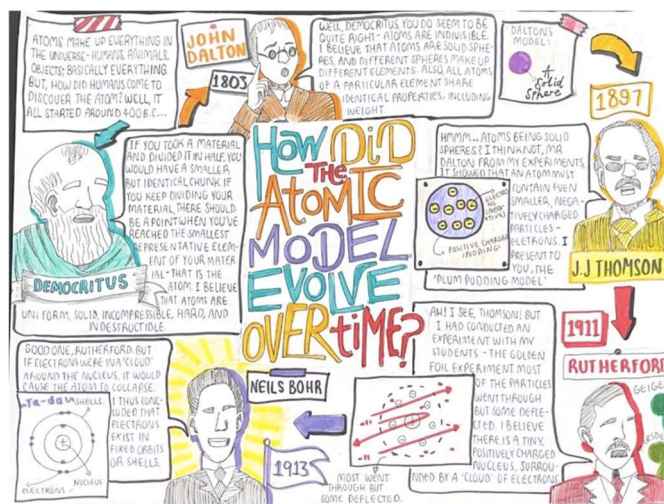 ATOMS MAKE UP EVERYTHING
IN THE UNIVERSE - HUMANS, ANIMALS,
OBJECTS; BASICALLY EVERYTHING.
BUT, HOW DID HUMANS COME TO
DISCOVER THE ATOM? WELL, IT
ALL STARTED AROUND 400 B.C...
JOHN
DALTON
1803
WELL, DEMOCRITUS, YOU DO SEEM TO BE
QUITE RIGHT - ATOMS ARE INDIVISIBLE.
I BELIEVE THAT ATOMS ARE SOLID SPHE-
RES, AND DIFFERENT SPHERES MAKE UP
DIFFERENT ELEMENTS. ALSO, ALL ATOMS
OF A PARTICULAR ELEMENT SHARE
IDENTICAL PROPERTIES, INCLUDING
WEIGHT.
DALTON'S
MODEL:
A
Solid
Sphere
1897
IF YOU TOOK A MATERIAL
AND DIVIDED IT IN HALF, YOU
WOULD HAVE A SMALLER
BUT IDENTICAL CHUNK. IF
YOU KEEP DIVIDING YOUR
MATERIAL, THERE SHOULD
BE A POINT WHEN YOU'VE
REACHED THE SMALLEST
REPRESENTATIVE ELEM-
ENT OF YOUR MATER
IAL - THAT IS THE
ATOM. I BELIEVE
THAT ATOMS ARE
UNIFORM, SOLID, INCOMPRESSIBLE, HARD, AND
INDESTRUCTIBLE.
DEMOCRITUS
HOW DID
THE
ATOMIC
MODEL
EVOLVE
OVER TIME?
HMMM... ATOMS BEING SOLID
SPHERES? I THINK NOT, MR
DALTON. FROM MY EXPERIMENTS,
IT SHOWED THAT AN ATOM MUST
CONTAIN EVEN
SMALLER, NEGA-
TIVELY CHARGED
PARTICLES -
ELETRONS. I
PRESENT TO
YOU, THE
'PLUM PUDDING MODEL'
POSITIVE CHARGED
(PUDDING)
J.J THOMSON
1911
RUTHERFORD
GEIGE
AH! I SEE, THOMSON! BUT
I HAD CONDUCTED AN
EXPERIMENT WITH MY
STUDENTS - THE GOLDEN
FOIL EXPERIMENT. MOST
OF THE PARTICLES
WENT THROUGH
BUT SOME DEFLE-
CTED. I BELIEVE
THERE IS A TINY,
POSITIVELY CHARGED
NUCLEUS, SURROU-
NDED BY A 'CLOUD' OF ELECTRONS
MOST WENT
THROUGH BUT
SOME DEFLECTED.
NEILS BOHR
1913
GOOD ONE, RUTHERFORD. BUT
IF ELECTRONS WERE IN A 'CLOUD'
AROUND THE NUCLEUS, IT WOULD
CAUSE THE ATOM TO COLLAPSE.
I THUS CONC
LUDED THAT
ELECTRONS
EXIST IN
FIXED ORBITS
OR SHELLS.
Ta-dau
SHELLS
NUCLEUS
ELECTRONS